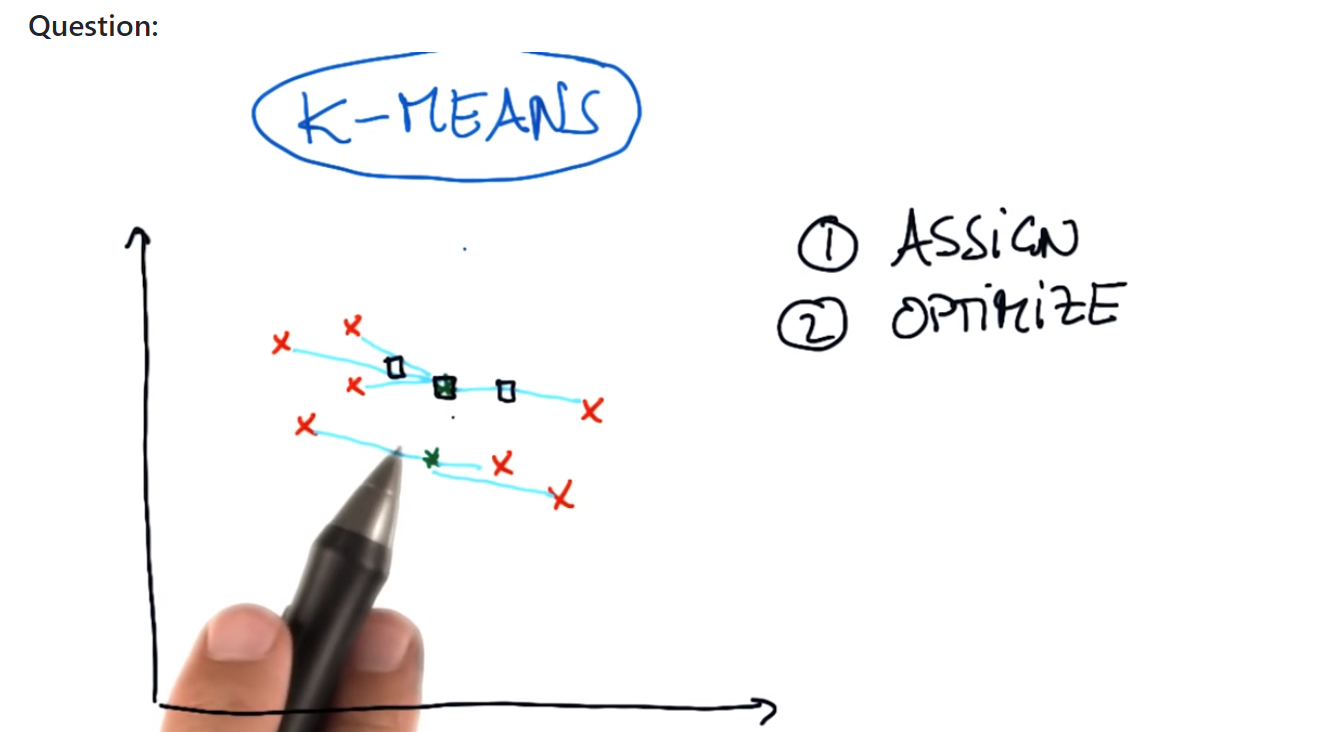 Question:
K-MEANS
① ASSiGN
② OPTiMiZE